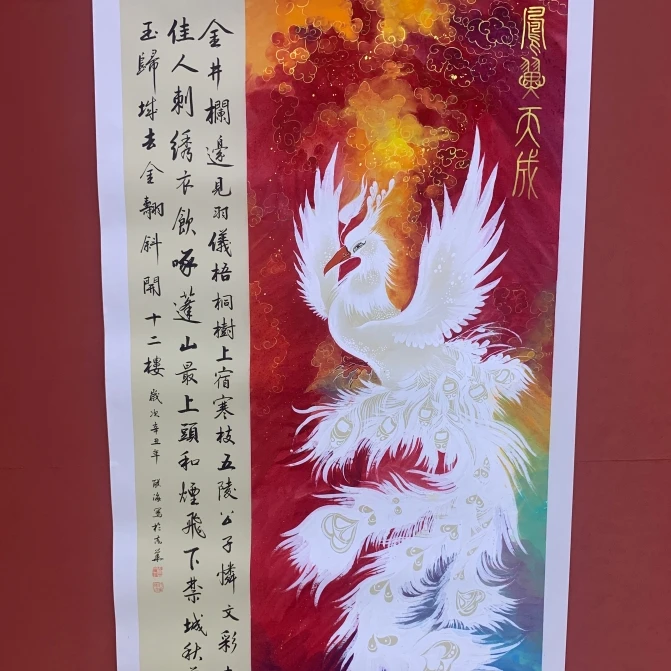 鳳翼天成
金井欄邊見羽儀梧桐樹上宿寒枝五陵公子憐文彩
佳人刺绣衣飲啄蓬山最上頭和煙飛下禁城秋
玉歸城去金翻斜開十二樓
歲次辛丑年 海寫於京華